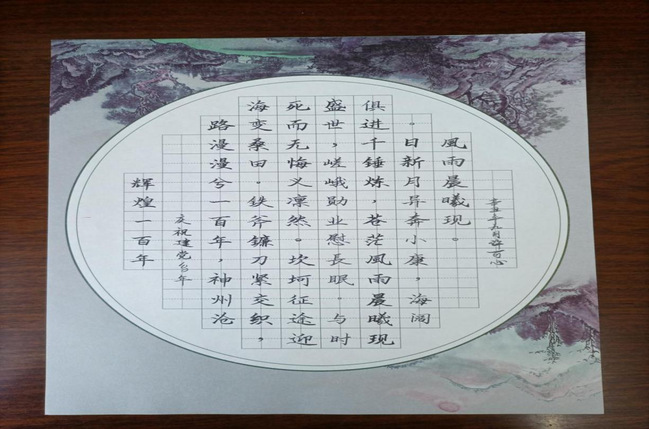 辉煌一百年
庆祝建党百年
路漫漫兮一百年，神州沧
海变桑田。鉄斧镰刀紧交织，
死而无悔义凛然。坎坷征途迎
盛世，嵯峨勋业慰長眠。与时
俱进千锤炼，苍茫風雨晨曦现
。日新月异奔小康，海阔
風雨晨曦现。
辛丑年九月許可心